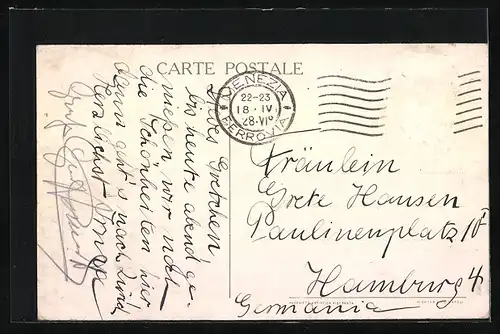 CARTE POSTALE
VENEZIA
22-23
18·IV
28·VIº
FERROVIA
Liebes Gretchen
bis heute abend ge-
nießen wir noch
die Schönheiten hier
dann geht's nach
Herzlichst
Fräulein
Grete Hansen
Paulinenplatz 10
Hamburg 4
Germania